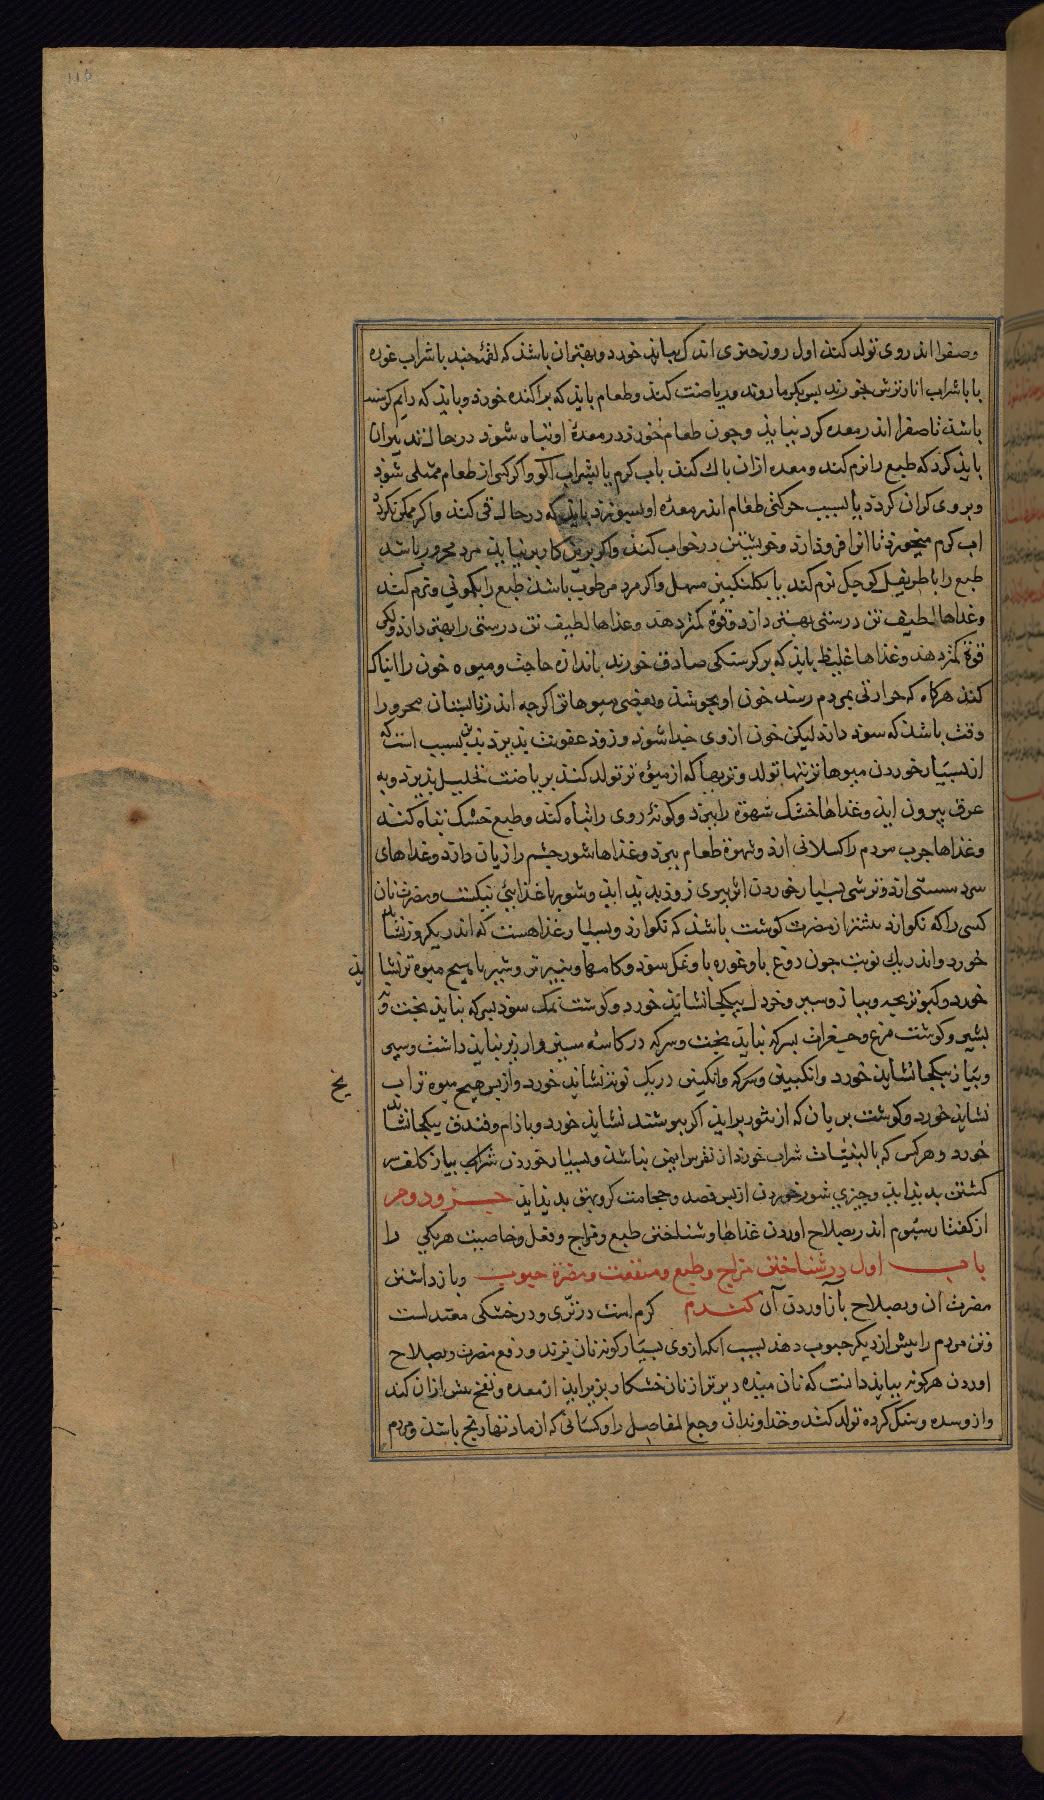 وصفرا اندروی تولد کند اول روز چیزی اندک بباید خورد و بهتر ان باشد که لقمهٔ چند با شراب غوره
یا با شراب انار ترش خورند پس بکرما روند و ریاضت کنند و طعام باید که پراکنده خورد و باید که دایم کرسنه
باشد تا صفرا اندر معده کرد نیاید و چون طعام خورد در معدهٔ او تباه شود در حال تدبیر ان
باید کرد که طبع را نرم کند و معده ازان پاک کند باب کرم یا بشراب اکر و اکر کسی از طعام ممتلی شود
و بروی کران کردد یا بسبب حرکتی طعام اندر معده او بسوزد باید که درحال قی کند و اکر ممکن نکردد
اب کرم میخورد تا انرا فروذارد و خویشتن در خواب کند و اکر برین کار برنیاید مرد محرور باشد
طبع را باطریفل کوچک نرم کند یا بکلنکبین مسهل و اکر مرد مرطوب باشد طبع را بکمونی نرم کند
وغذاها لطیف تن درستی بهتر دارد و قوة کمتر دهد وغذاها لطیف تن درستی را بهتر دارد ولکن
قوة کمتر دهند و غذاها غلیظ باید که بر کرسنکی صادق خورند باندازه حاجت و میوه خون را ابناک
کند هرکاه که حرارتی بمردم رسد خون او بجوشد و بعضی میوهاتر اکرچه اندر تابستان محرور را
وقت باشد که سود دارد لیکن خون ازوی جدا شود و زود عفونت پذیرد بدین سبب است که
از بسیار خوردن میوهاتر تبها تولد و تریها که از میوه تر تولد کند بریاضت تحلیل پذیرد و به
عرق بیرون اید وغذاها خشک شهوة را ببرد و کونهٔ روی را تباه کند و طبع خشک تباه کند
وغذاها چرب مردم را کسلانی ارد و شهوة طعام ببرد وغذاها شور چشم را زیان دارد وغذاهای
سرد سستی ارد و ترشی بسیار خوردن اثر پیری زود پدید اید و شوربا غذایی نیکست و مضرت نان
کسی را که نکوارد بیشتر از مضرت کوشت باشد که نکوارد و بسیار غذاهست که اندر یکروز نشا
خورد و اندر یک نوبت چون دوغ با وغوره با و نمک سود و کامها و پنیر تر و شیر با هیچ میوه تر نشا ید
خورد و کبوتر بچه و پیاز و سیر و خردل بیکجا نشاید خورد و کوشت نمک سود بسرکه نباید پخت و نه
بشیر و کوشت مرغ و جغرات بسرکه نباید پخت و سرکه در کاسه مسین و ارزیز نباید داشت و سیر
و پیاز بیکجا نشاید خورد و انکبین و سرکه و انکبین در یک نوبت نشاید خورد و از پس هیچ میوه تر اب یخ
نشاید خورد و کوشت بریان که از تنور براید اکر بپوشند نشاید خورد و بادام و فندق بیکجا نشاید
خورد و هرکس که بالینیات شراب خورد از نقرس ایمن نباشد و بسیار خوردن شراب بیاز کلف بر
کشتن پدید اید و چیزی شور خوردن از پس فصد و حجامت کر و بهق پدید اید جزو دوم
از کفتار سیوم اندر بصلاح اوردن غذاها و شناختن طبع و مزاج و فعل و خاصیت هر یکی را
باب اول در شناختن مزاج و طبع و منفعت و مضرة حبوب و بازداشتن
مضرت ان و بصلاح باز آوردن آن کندم کرم است در تری و در خشکی معتدلست
و تن مردم را بیش از دیکر حبوب دهد بسبب انکه ازوی بسیار کونه نان پزند و دفع مضرت و بصلاح
اوردن هر کونه بباید دانست که نان میده دیرتر از نان خشکار بزیر اید از معده و نفخ بیش ازان کند
و ازو سده و سنک کرده تولد کند و خداوندان وجع المفاصل را و کسانی که از مادتها رنج باشد و مردم